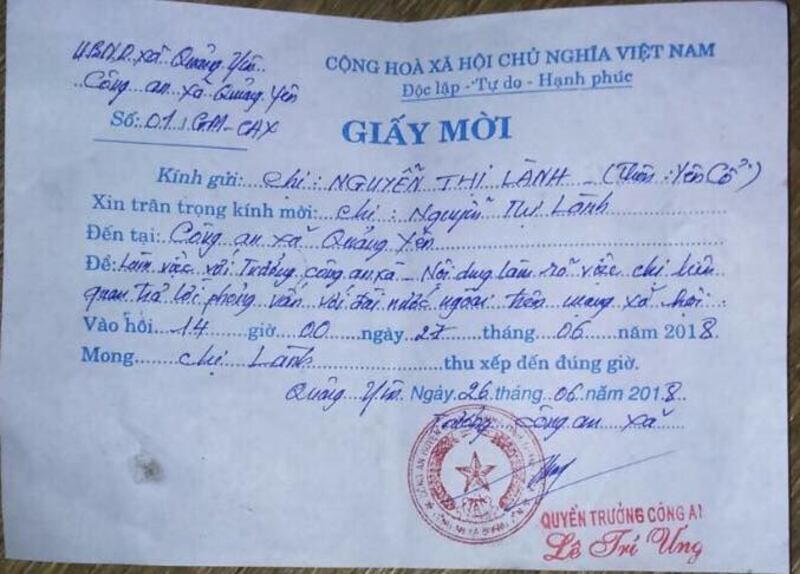 U.B.N.D xã Quảng Yên
Công an xã Quảng Yên
Số: 01/GM-CAX
CỘNG HOÀ XÃ HỘI CHỦ NGHĨA VIỆT NAM
Độc lập - Tự do - Hạnh phúc
GIẤY MỜI
Kính gửi: Chị: NGUYỄN THỊ LÀNH - (Thôn: Yên Cổ)
Xin trân trọng kính mời: Chị: Nguyễn Thị Lành
Đến tại: Công an xã Quảng Yên
Để: Làm việc với Trưởng công an xã - Nội dung làm rõ việc chị liên
quan trả lời phỏng vấn với đài nước ngoài trên mạng xã hội.
Vào hồi 14 giờ 00 ngày 27 tháng 06 năm 2018.
Mong chị Lành thu xếp đến đúng giờ.
Quảng Yên. Ngày 26 tháng 06 năm 2018
Trưởng công an xã
QUYỀN TRƯỞNG CÔNG AN
Lê Trí Ứng